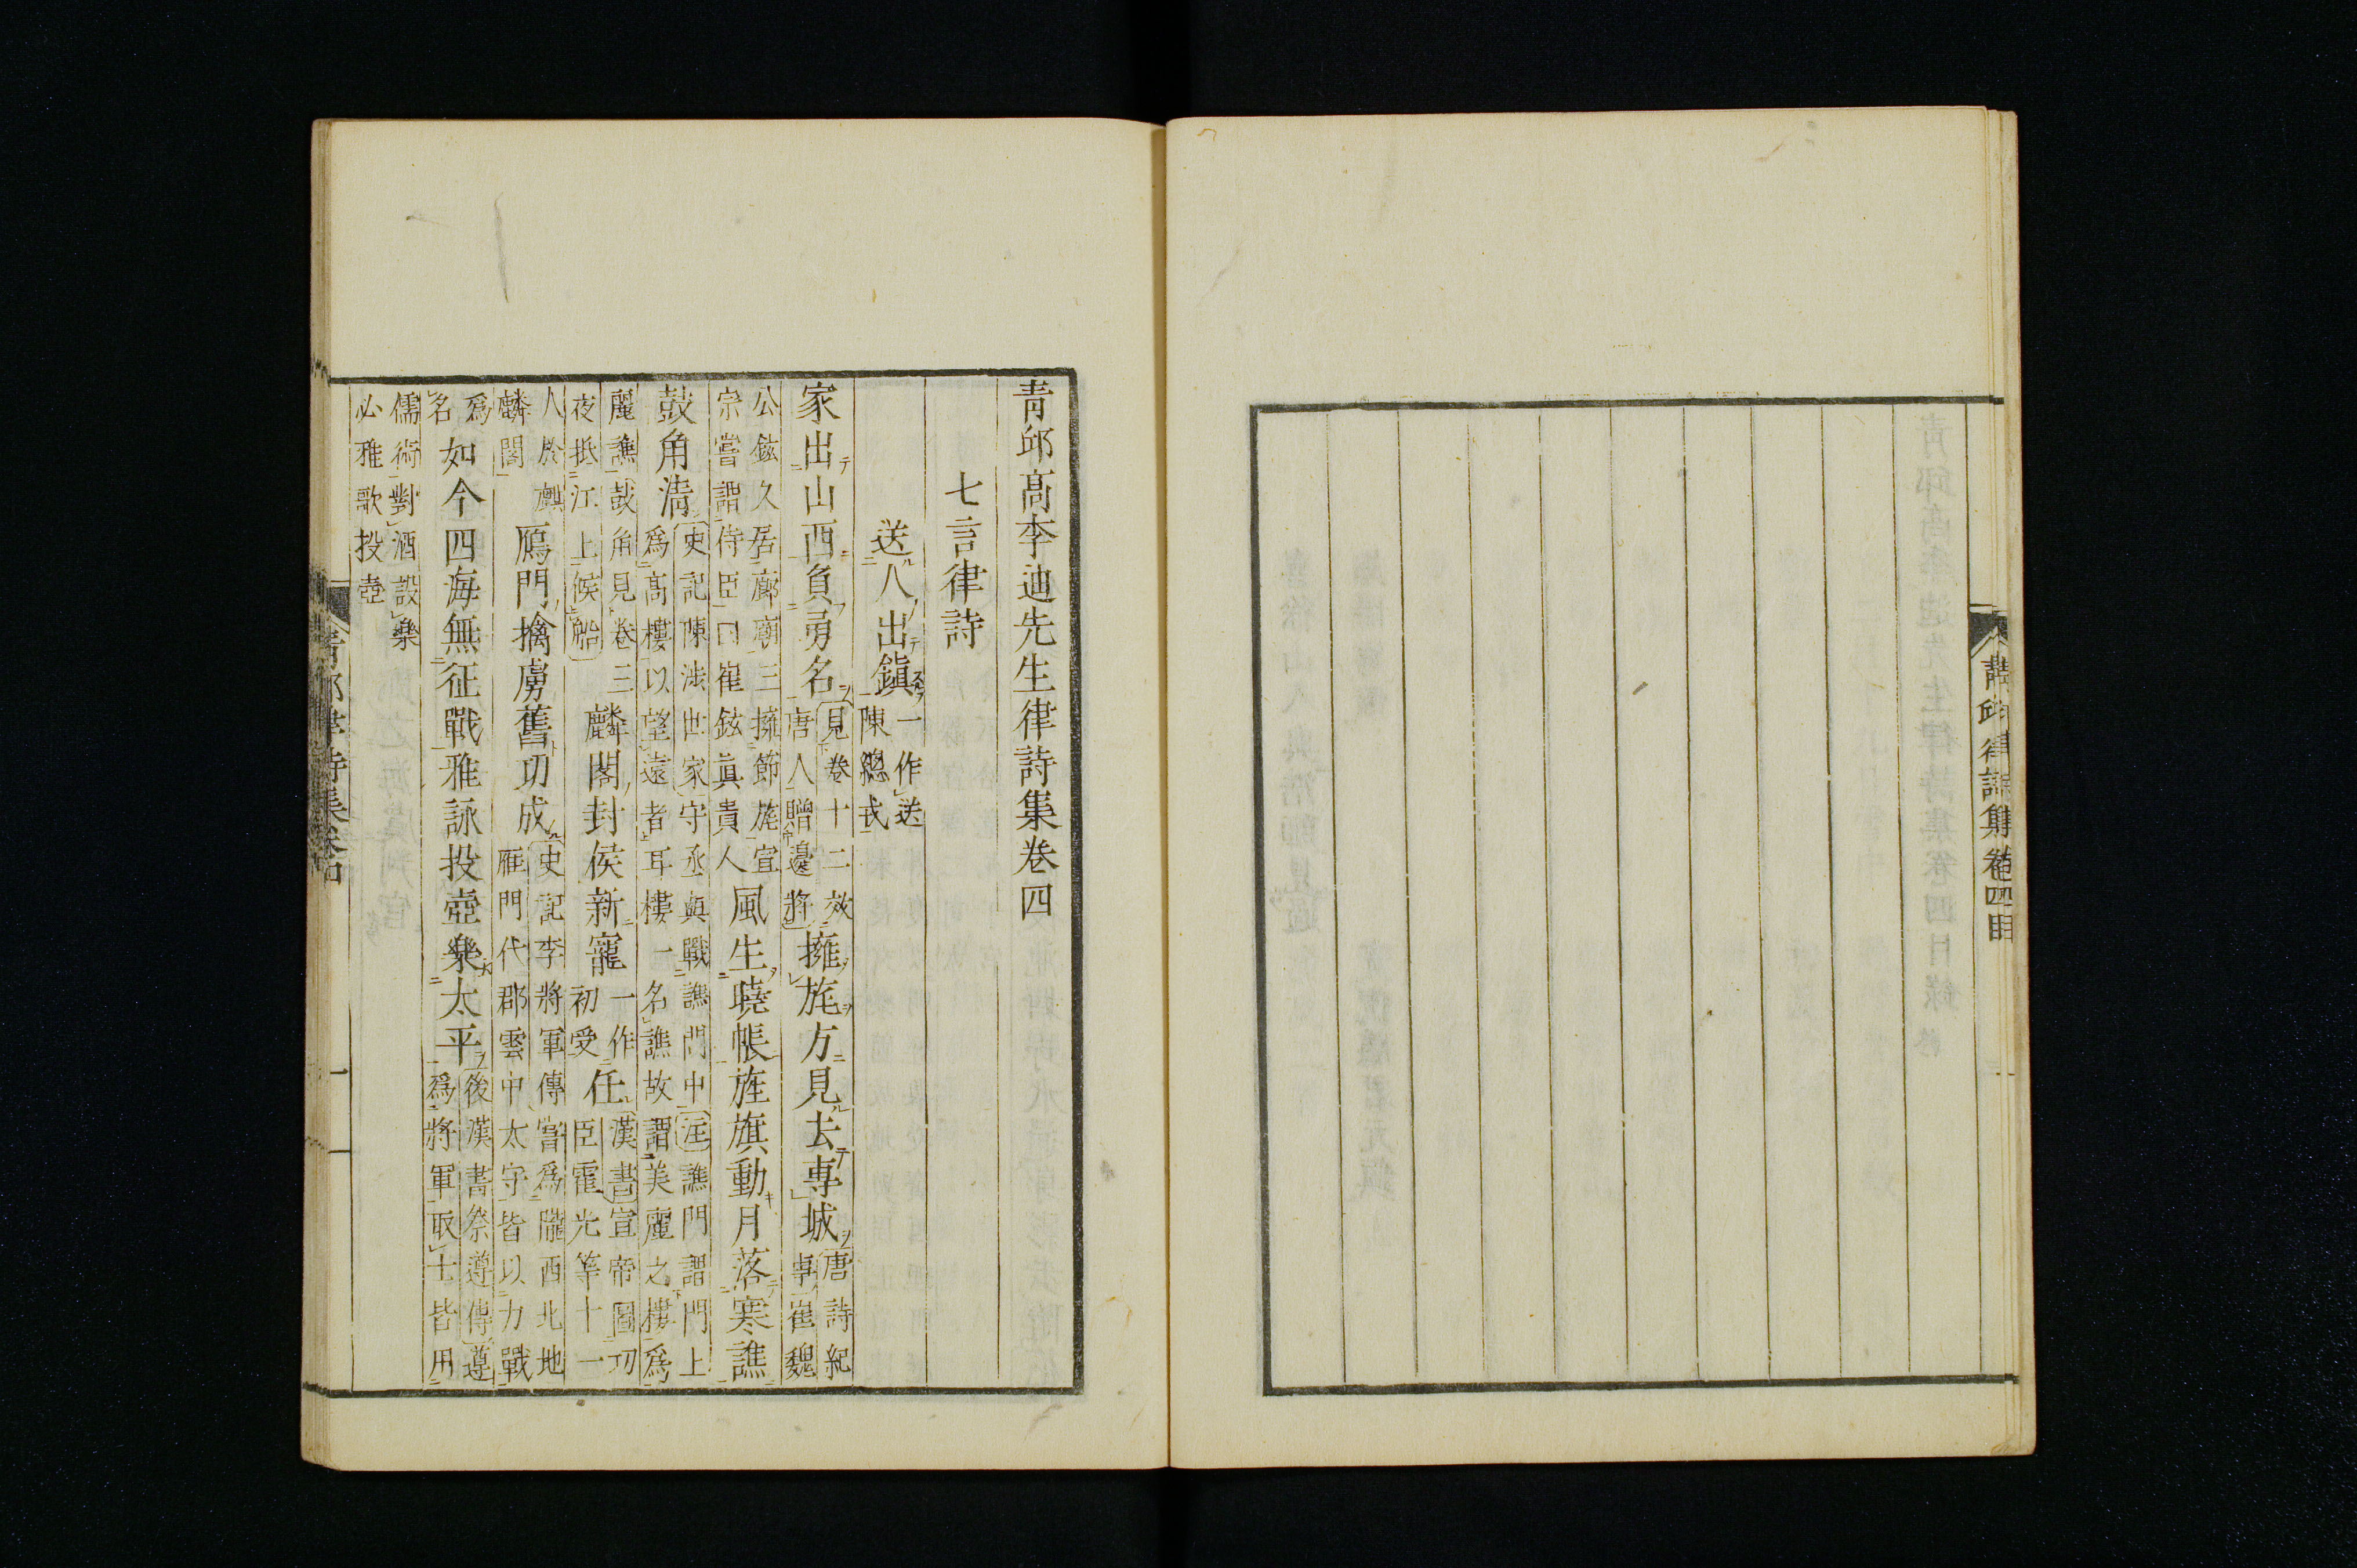 靑邱律詩集卷四目
青邱髙李迪先生律詩集卷四
七言律詩
送人出鎭
一作送
陳總戎
家出山西負勇名
見卷十二效
唐人贈邊將
擁旄方見去專城
唐詩紀
事崔魏
公鉉久居廊廟三擁節旄宣
宗嘗謂侍臣曰崔鉉眞貴人
風生曉帳旌旗動月落寒譙
鼓角淸
史記陳涉世家守丞與戰譙門中注譙門謂門上
爲髙樓以望遠者耳樓一名譙故謂美麗之樓爲
麗譙鼓角見卷三
夜抵江上候船
麟閣封侯新寵
一作
初受
任
漢書宣帝圖功
臣霍光等十一
人於麒
麟閣
鴈門擒虜舊功成
史記李將軍傳嘗爲隴西北地
雁門代郡雲中太守皆以力戰
爲
名
如今四海無征戰雅詠投壺樂太平
後漢書祭遵傳遵
爲將軍取士皆用
儒術對酒設樂
必雅歌投壺
青邱律詩集卷四
一